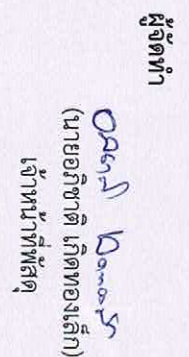 ผู้จัดทำ
(นายอภิชาติ เกิดทองเล็ก)
เจ้าหน้าที่พัสดุ